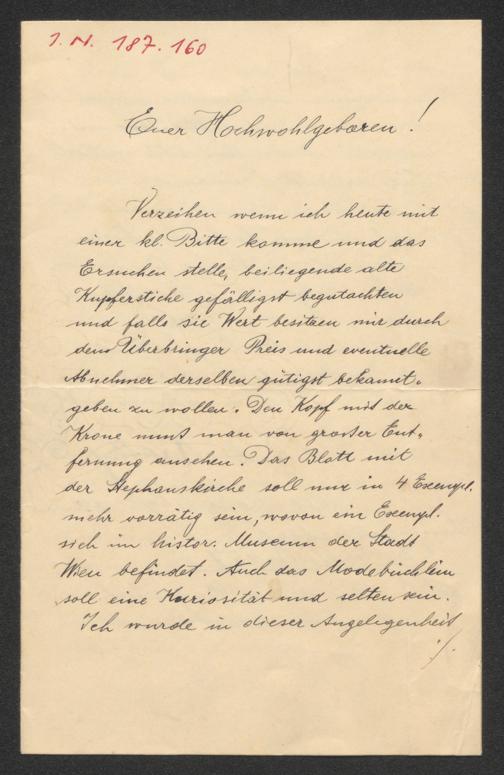 I. N. 187.160
Euer Hochwohlgeboren!
Verzeihen wenn ich heute mit
einer kl. Bitte komme und das
Ersuchen stelle, beiliegende alte
Kupferstiche gefälligst begutachten
und falls sie Wert besitzen mir durch
dem Überbringer Preis und eventuelle
Abnehmer derselben gütigst bekannt-
geben zu wollen. Den Kopf mit der
Krone muß man von großer Ent-
fernung ansehen. Das Blatt mit
der Stephanskirche soll nur in 4 Exempl.
mehr vorrätig sein, wovon ein Exempl.
sich im histor. Museum der Stadt
Wien befindet. Auch das Modebüchlein
soll eine Kuriosität und selten sein.
Ich wurde in dieser Angelegenheit
./.